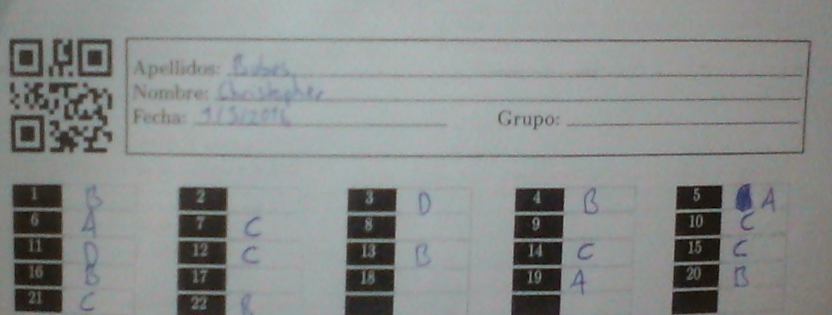 Apellidos:
Nombre: Christopher
Fecha: 9/3/2016 Grupo:
1 B 2 3 D 4 B 5 A
6 A 7 C 8 9 10 C
11 D 12 C 13 B 14 C 15 C
16 B 17 18 19 A 20 B
21 C 22